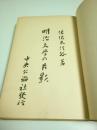 佐佐木信綱著
明治文學の片影
中央公論社發行